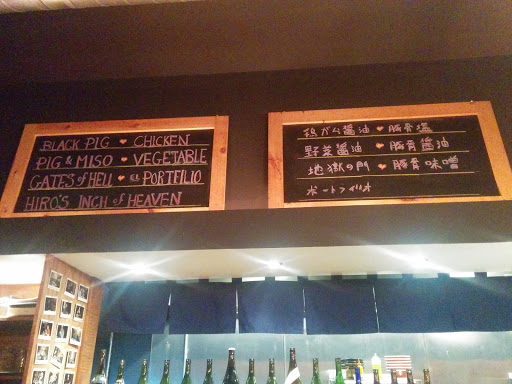 BLACK PIG ♥ CHICKEN
PIG & MISO ♥ VEGETABLE
GATES of HELL ♥ EL PORTEILIO
HIRO'S INCH of HEAVEN
鶏がら醤油 ♥ 豚骨塩
野菜醤油 ♥ 豚骨醤油
地獄の門 ♥ 豚骨味噌